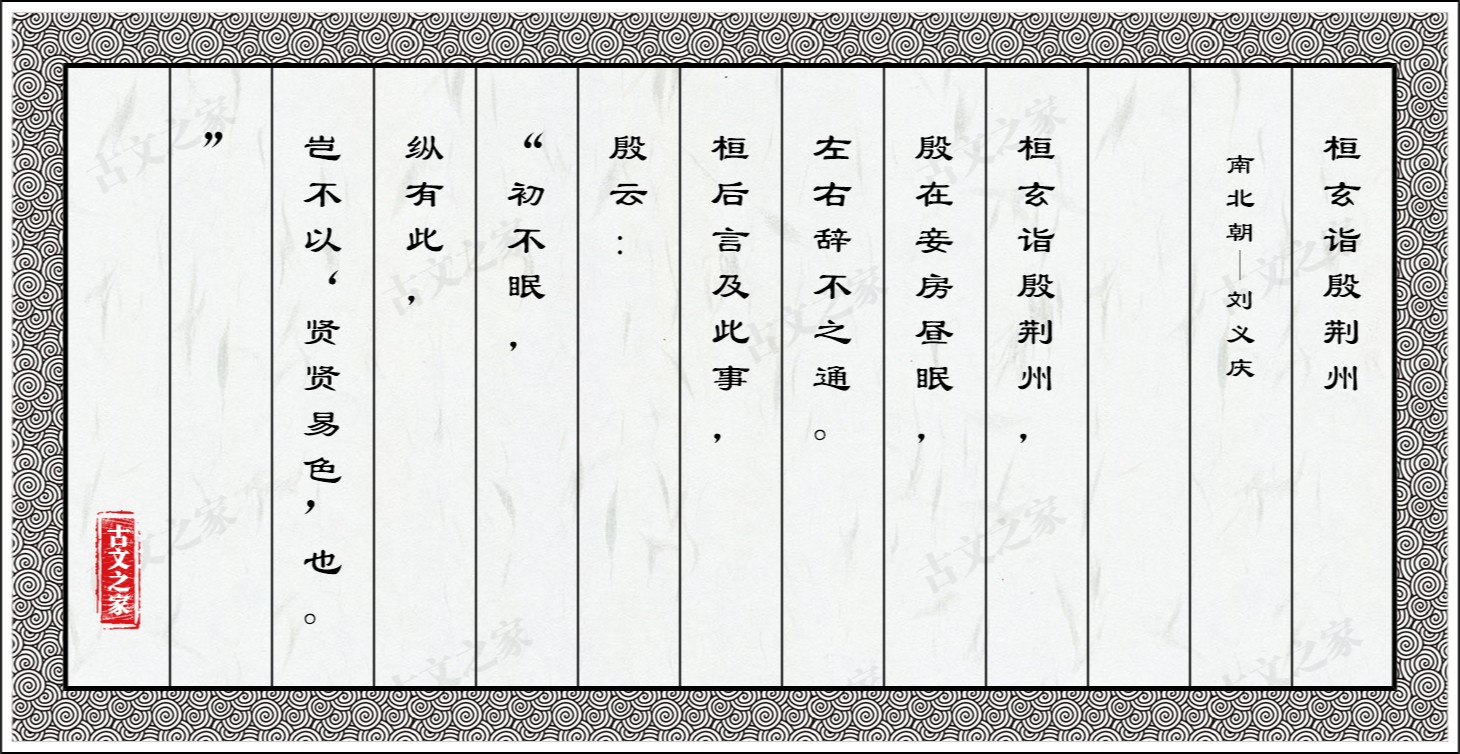 桓玄诣殷荆州
南北朝—刘义庆
桓玄诣殷荆州，
殷在妾房昼眠，
左右辞不之通。
桓后言及此事，
殷云：
“初不眠，
纵有此，
岂不以‘贤贤易色’也。
”
古文之家